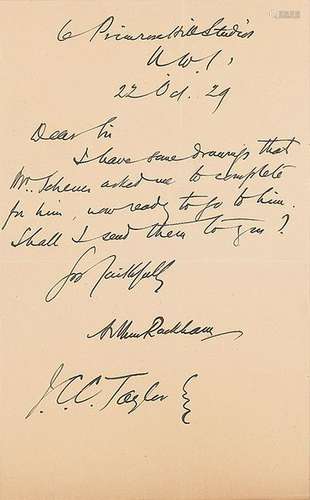 6 Primrose Hill Studios
N.W.1.
22 Oct. 29
Dear Sir
I have some drawings that
Mr. Scheuer asked me to complete
for him, now ready to go to him.
Shall I send them to you?
Yrs faithfully
Arthur Rackham
J.C.C. Taylor